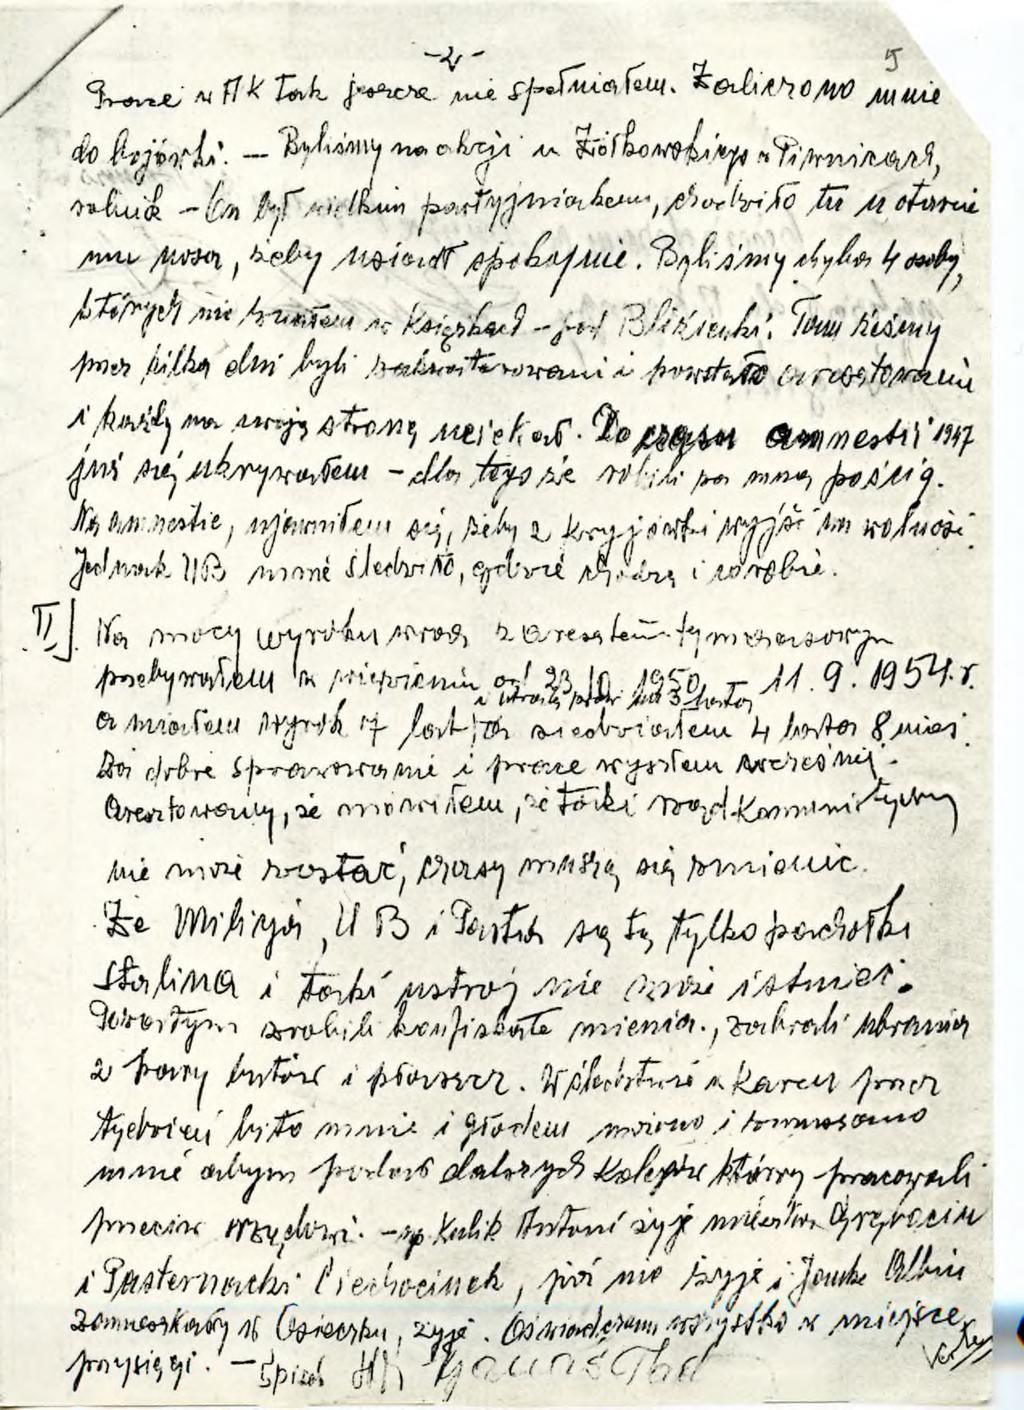 -2-
5
Prace w AK tak jeszcze nie spełniałem. Zaliczono mnie
do bojówki. — Byliśmy na akcji u Ziółkowskiego w Piwnicach,
rolnik - On był wielkim partyjniakem, chodziło tu u otarcie
mu nosa, żeby usiadł spokojnie. Byliśmy chyba 4 osoby,
których nie znałem w Książkach - pod Blizienki. Tam żeśmy
przez kilka dni byli zakwaterowani i powstało aresztowanie
i każdy na swoją stronę uciekał. Do czasu amnestii 1947
już się ukrywałem - dla tego że robili za mną pościg.
Na amnestie, ujawniłem się, żeby z kryjówki wyjść na wolność.
Jednak UB mnie śledziło, gdzie chodzę i co robie.
II). Na mocy wyroku wraz z aresztem tymczasowym
przebywałem w więzieniu od 23.10. 1950 11.9.1954.r.
i utratą praw na 3 lata,
a miałem wyrok 7 lat, a siedziałem 4 lata 8 mies.
Za dobre sprawowanie i prace wyszłem wcześniej.
Aresztowany, że mówiłem, że taki rząd Komunistyczny
nie może zostać, czasy muszą się zmienić.
Że Milicja, UB i Partia są to tylko pachołki
Stalina i taki ustrój nie może istnieć.
Pozatym zrobili konfiskate mienia., zabrali ubrania
2 pary butów i płaszcz. W śledztwie w Karcu przez
tydzień bito mnie i głodem morzono i zmuszano
mnie abym podał dalszych kolegów którzy pracowali
przeciw rządowi. - np Kulik Antoni żyje mieszka Grębocin
i Pasternacki Ciechocinek, już nie żyje i Janke Albin
zamieszkały w Osieczku, żyje. Oświadczam wszystko w miejsce
przysięgi. —